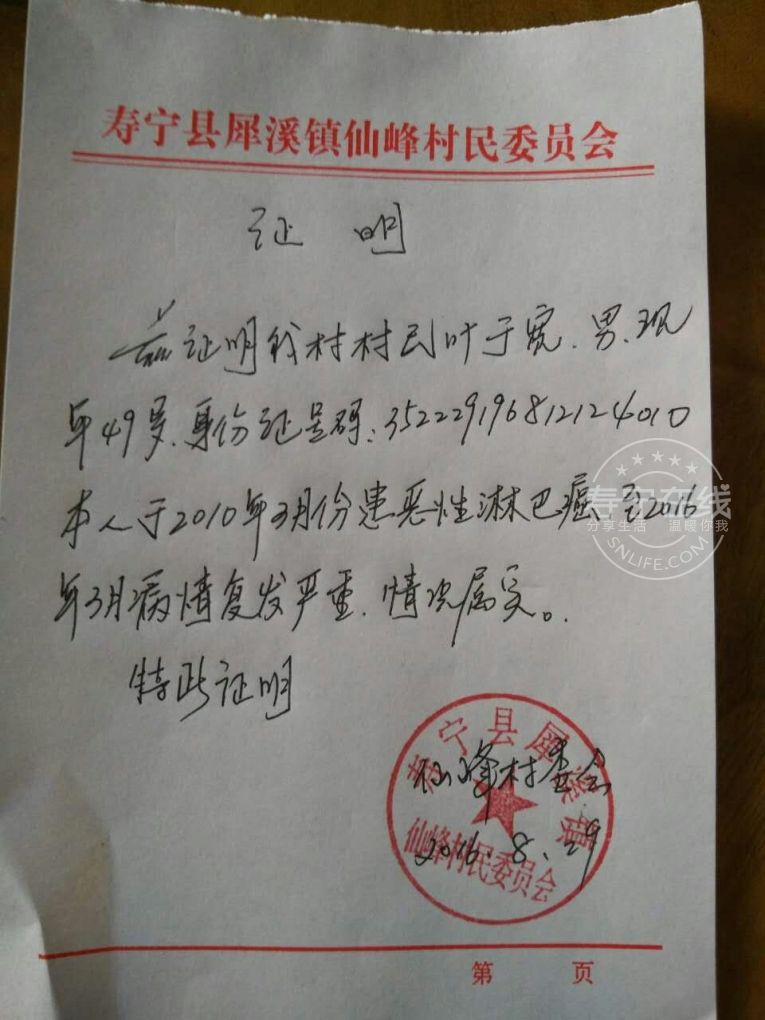 寿宁县犀溪镇仙峰村民委员会
证 明
兹证明我村村民叶于宽、男、现
年49岁、身份证号码:352229196812124010
本人于2010年3月份患恶性淋巴癌至2016
年3月病情复发严重、情况属实。
特此证明
仙峰村委会
2016.8.29
寿宁县犀溪镇
仙峰村民委员会
第 页
寿宁在线
分享生活 温暖你我
SNLIFE.COM